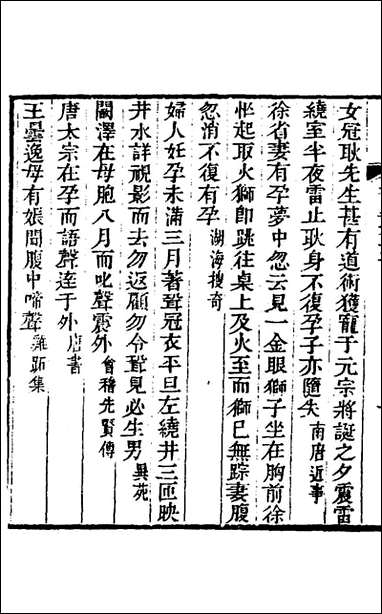 女冠耿先生甚有道術獲寵于元宗將誕之夕震雷
繞室半夜雷止耿身不復孕子亦隨失南唐近事
徐省妻有孕夢中忽云見一金眼獅子坐在胸前徐
怪起取火獅卽跳往桌上及火至而獅已無踪妻腹
忽消不復有孕湖海搜奇
婦人妊孕未滿三月著壻冠衣平旦左繞井三匝映
井水詳視影而去勿返顧勿令壻見必生男異苑
闞澤在母胞八月而叱聲震外會稽先賢傳
唐太宗在孕而語聲達于外唐書
王曇逸母有娠間腹中啼聲雞跖集